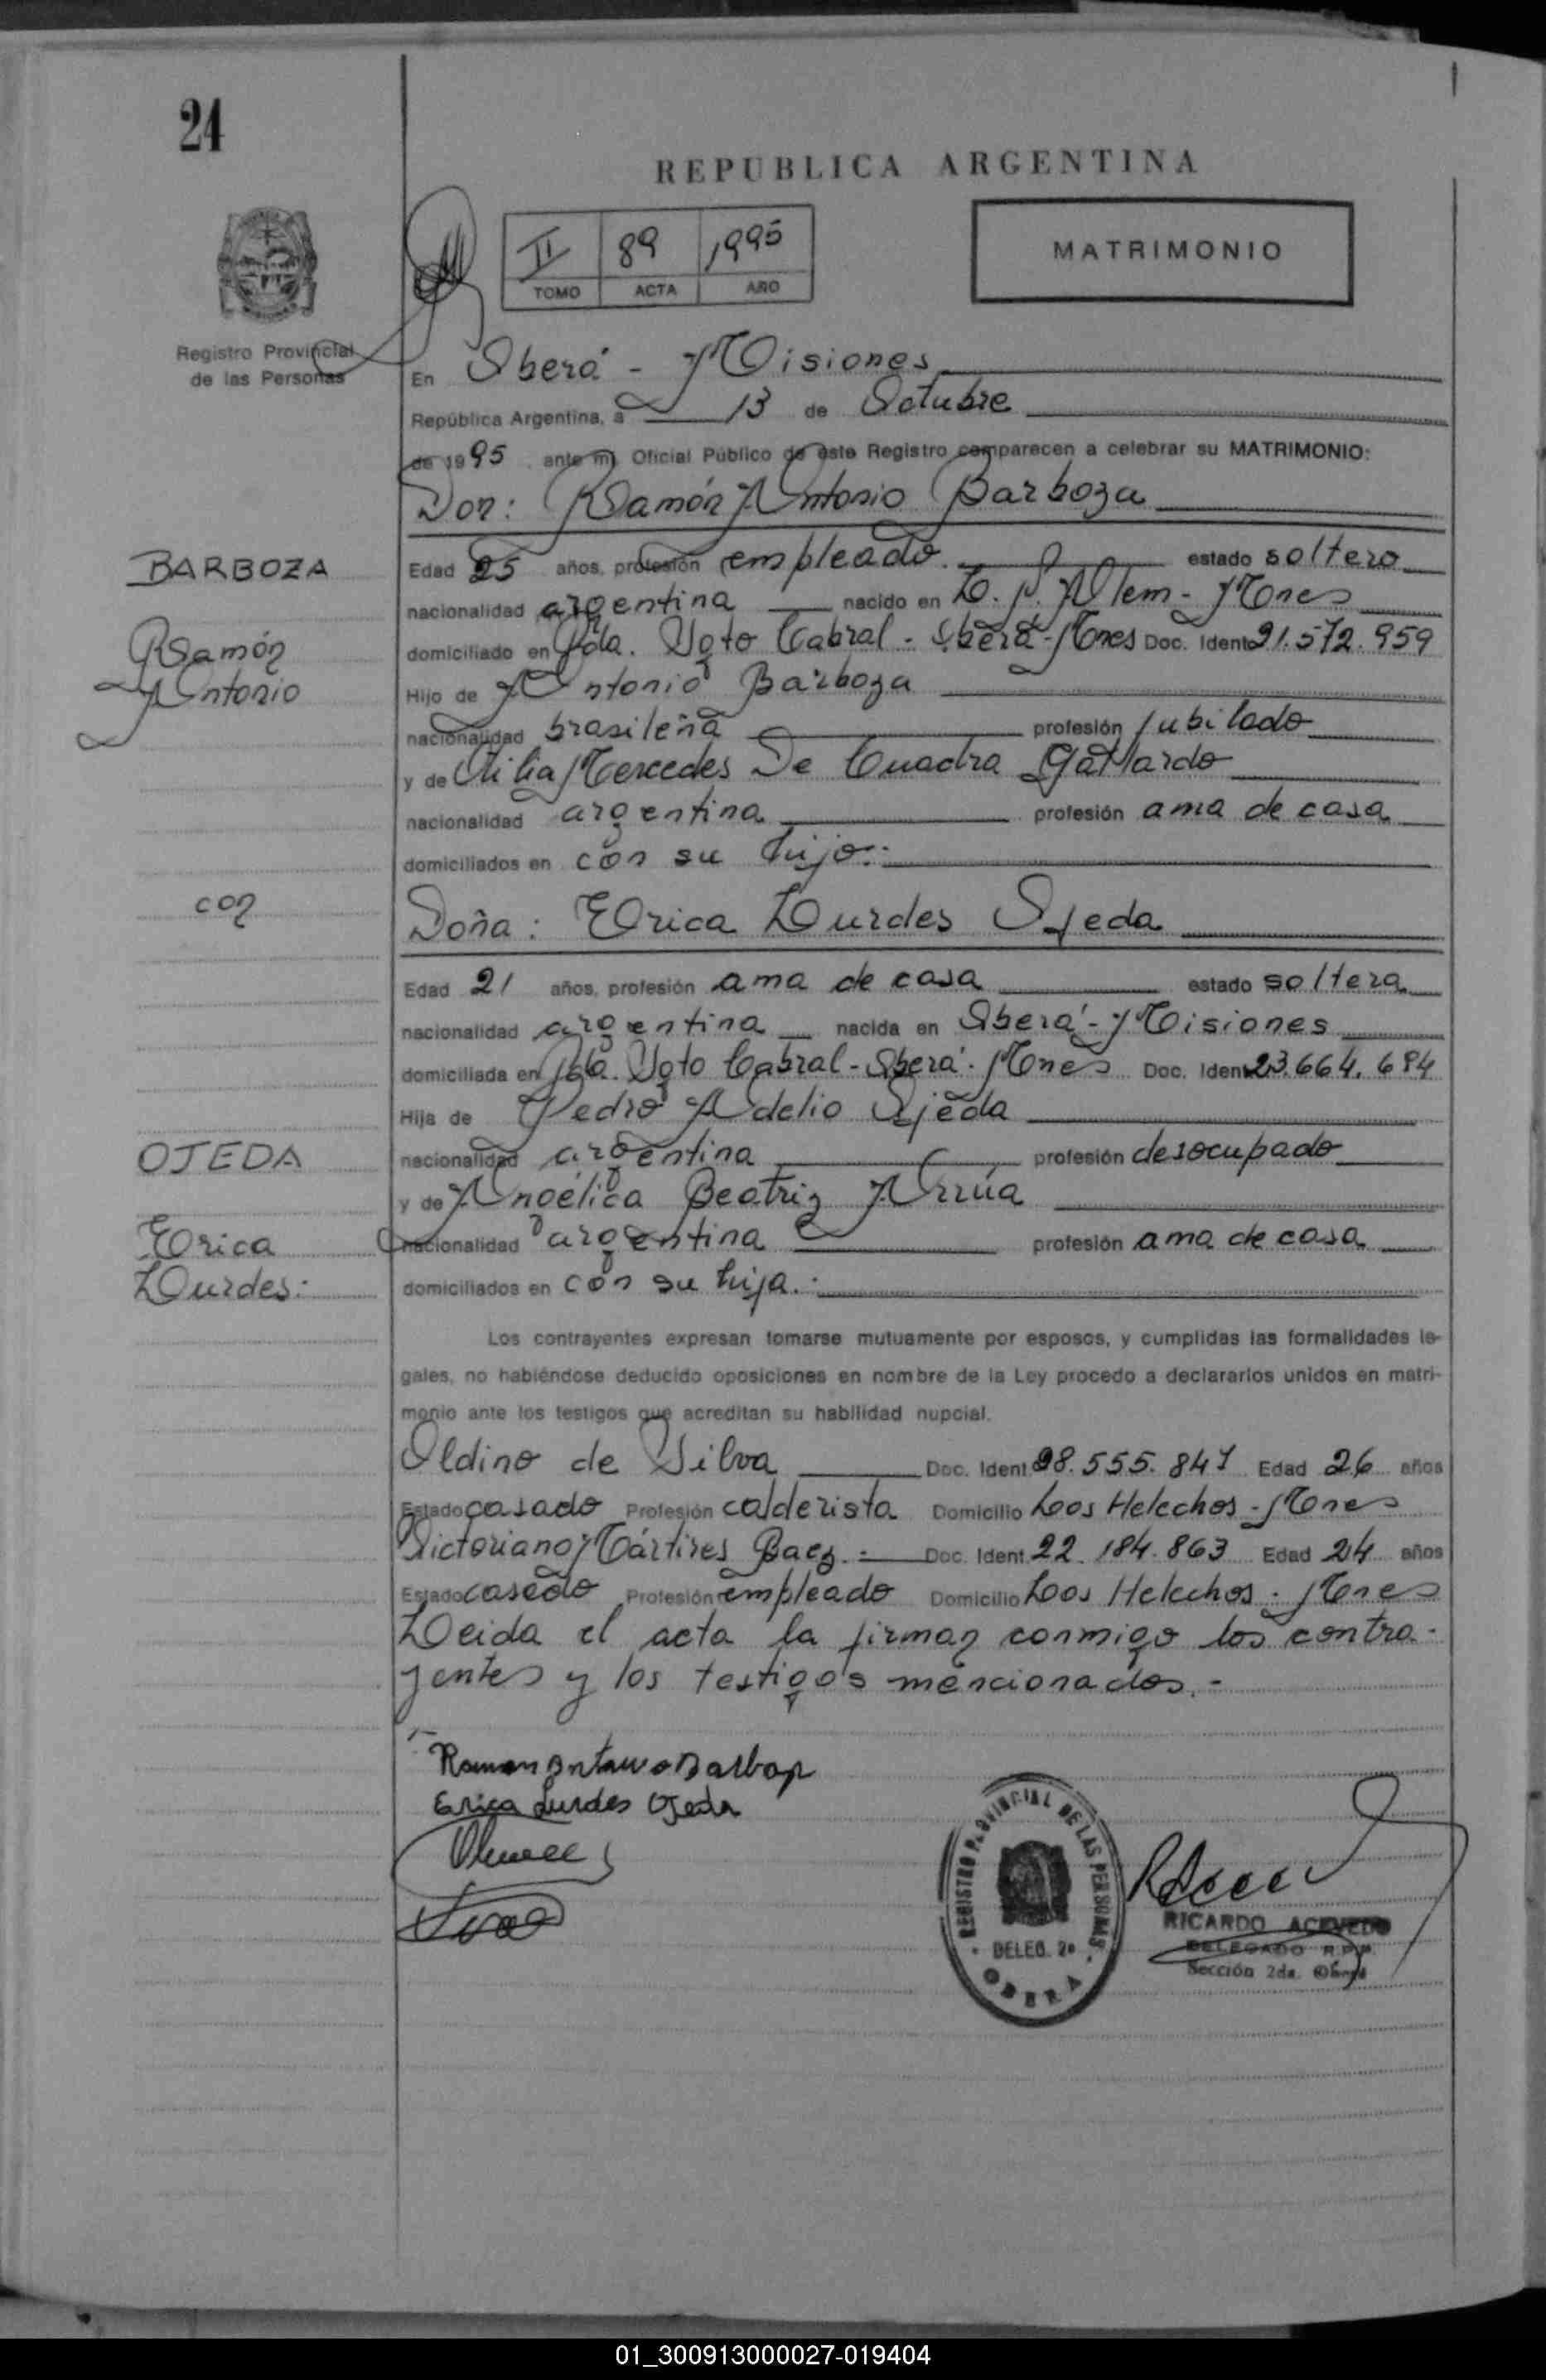 24
REPUBLICA ARGENTINA
II 89 1995
TOMO ACTA AÑO
MATRIMONIO
Registro Provincial
de las Personas
En Oberá - Misiones
República Argentina, a 13 de Octubre
de 1995 ante mí Oficial Público de este Registro comparecen a celebrar su MATRIMONIO:
Don: Ramón Antonio Barboza
BARBOZA
Ramón
Antonio
Edad 25 años, profesión empleado. estado soltero
nacionalidad argentina nacido en L. N. Alem - Mnes
domiciliado en Pda. Sgto Cabral - Oberá - Mnes Doc. Ident 21.572.959
Hijo de Antonio Barboza
nacionalidad brasileña profesión jubilado
y de Mercedes De Cuadra Gallardo
nacionalidad argentina profesión ama de casa
domiciliados en con su hijo.-
con
Doña: Erica Lurdes Ojeda
Edad 21 años, profesión ama de casa estado soltera
nacionalidad argentina nacida en Oberá - Misiones
domiciliada en Pda. Sgto Cabral - Oberá - Mnes Doc. Ident 23.664.684
Hija de Pedro Adelio Ojeda
OJEDA
Erica
Lurdes:
nacionalidad argentina profesión desocupado
y de Angélica Beatriz Arrúa
nacionalidad argentina profesión ama de casa
domiciliados en con su hija.-
Los contrayentes expresan tomarse mutuamente por esposos, y cumplidas las formalidades le-
gales, no habiéndose deducido oposiciones en nombre de la Ley procedo a declararlos unidos en matri-
monio ante los testigos que acreditan su habilidad nupcial.
Oldino de Silva Doc. Ident. 28.555.847 Edad 26 años
Estado casado Profesión calderista Domicilio Los Helechos - Mnes
Victoriano Mártires Baez.- Doc. Ident. 22.184.863 Edad 24 años
Estado casado Profesión empleado Domicilio Los Helechos - Mnes
Leida el acta la firman conmigo los contra-
yentes y los testigos mencionados.-
Ramon Antonio Barboza
Erica Lurdes Ojeda
REGISTRO PROVINCIAL DE LAS PERSONAS
DELEG. 2ª
OBERA
RICARDO ACEVEDO
DELEGADO R.P.P.
Sección 2da. Oberá
01_300913000027-019404